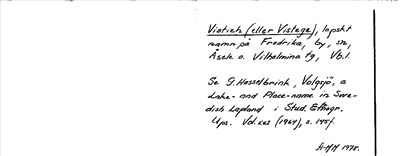 Vistich (eller Vistege), lapskt
namn på Fredrika, by, sn,
Åsele o. Vilhelmina tg, Vb.l.
Se G. Hasselbrink, Volgsjö, a
Lake- and Place-name in Swe-
dish Lapland i Stud. Ethnogr.
Ups. Vol. xxi (1964), s. 145f.
1978.